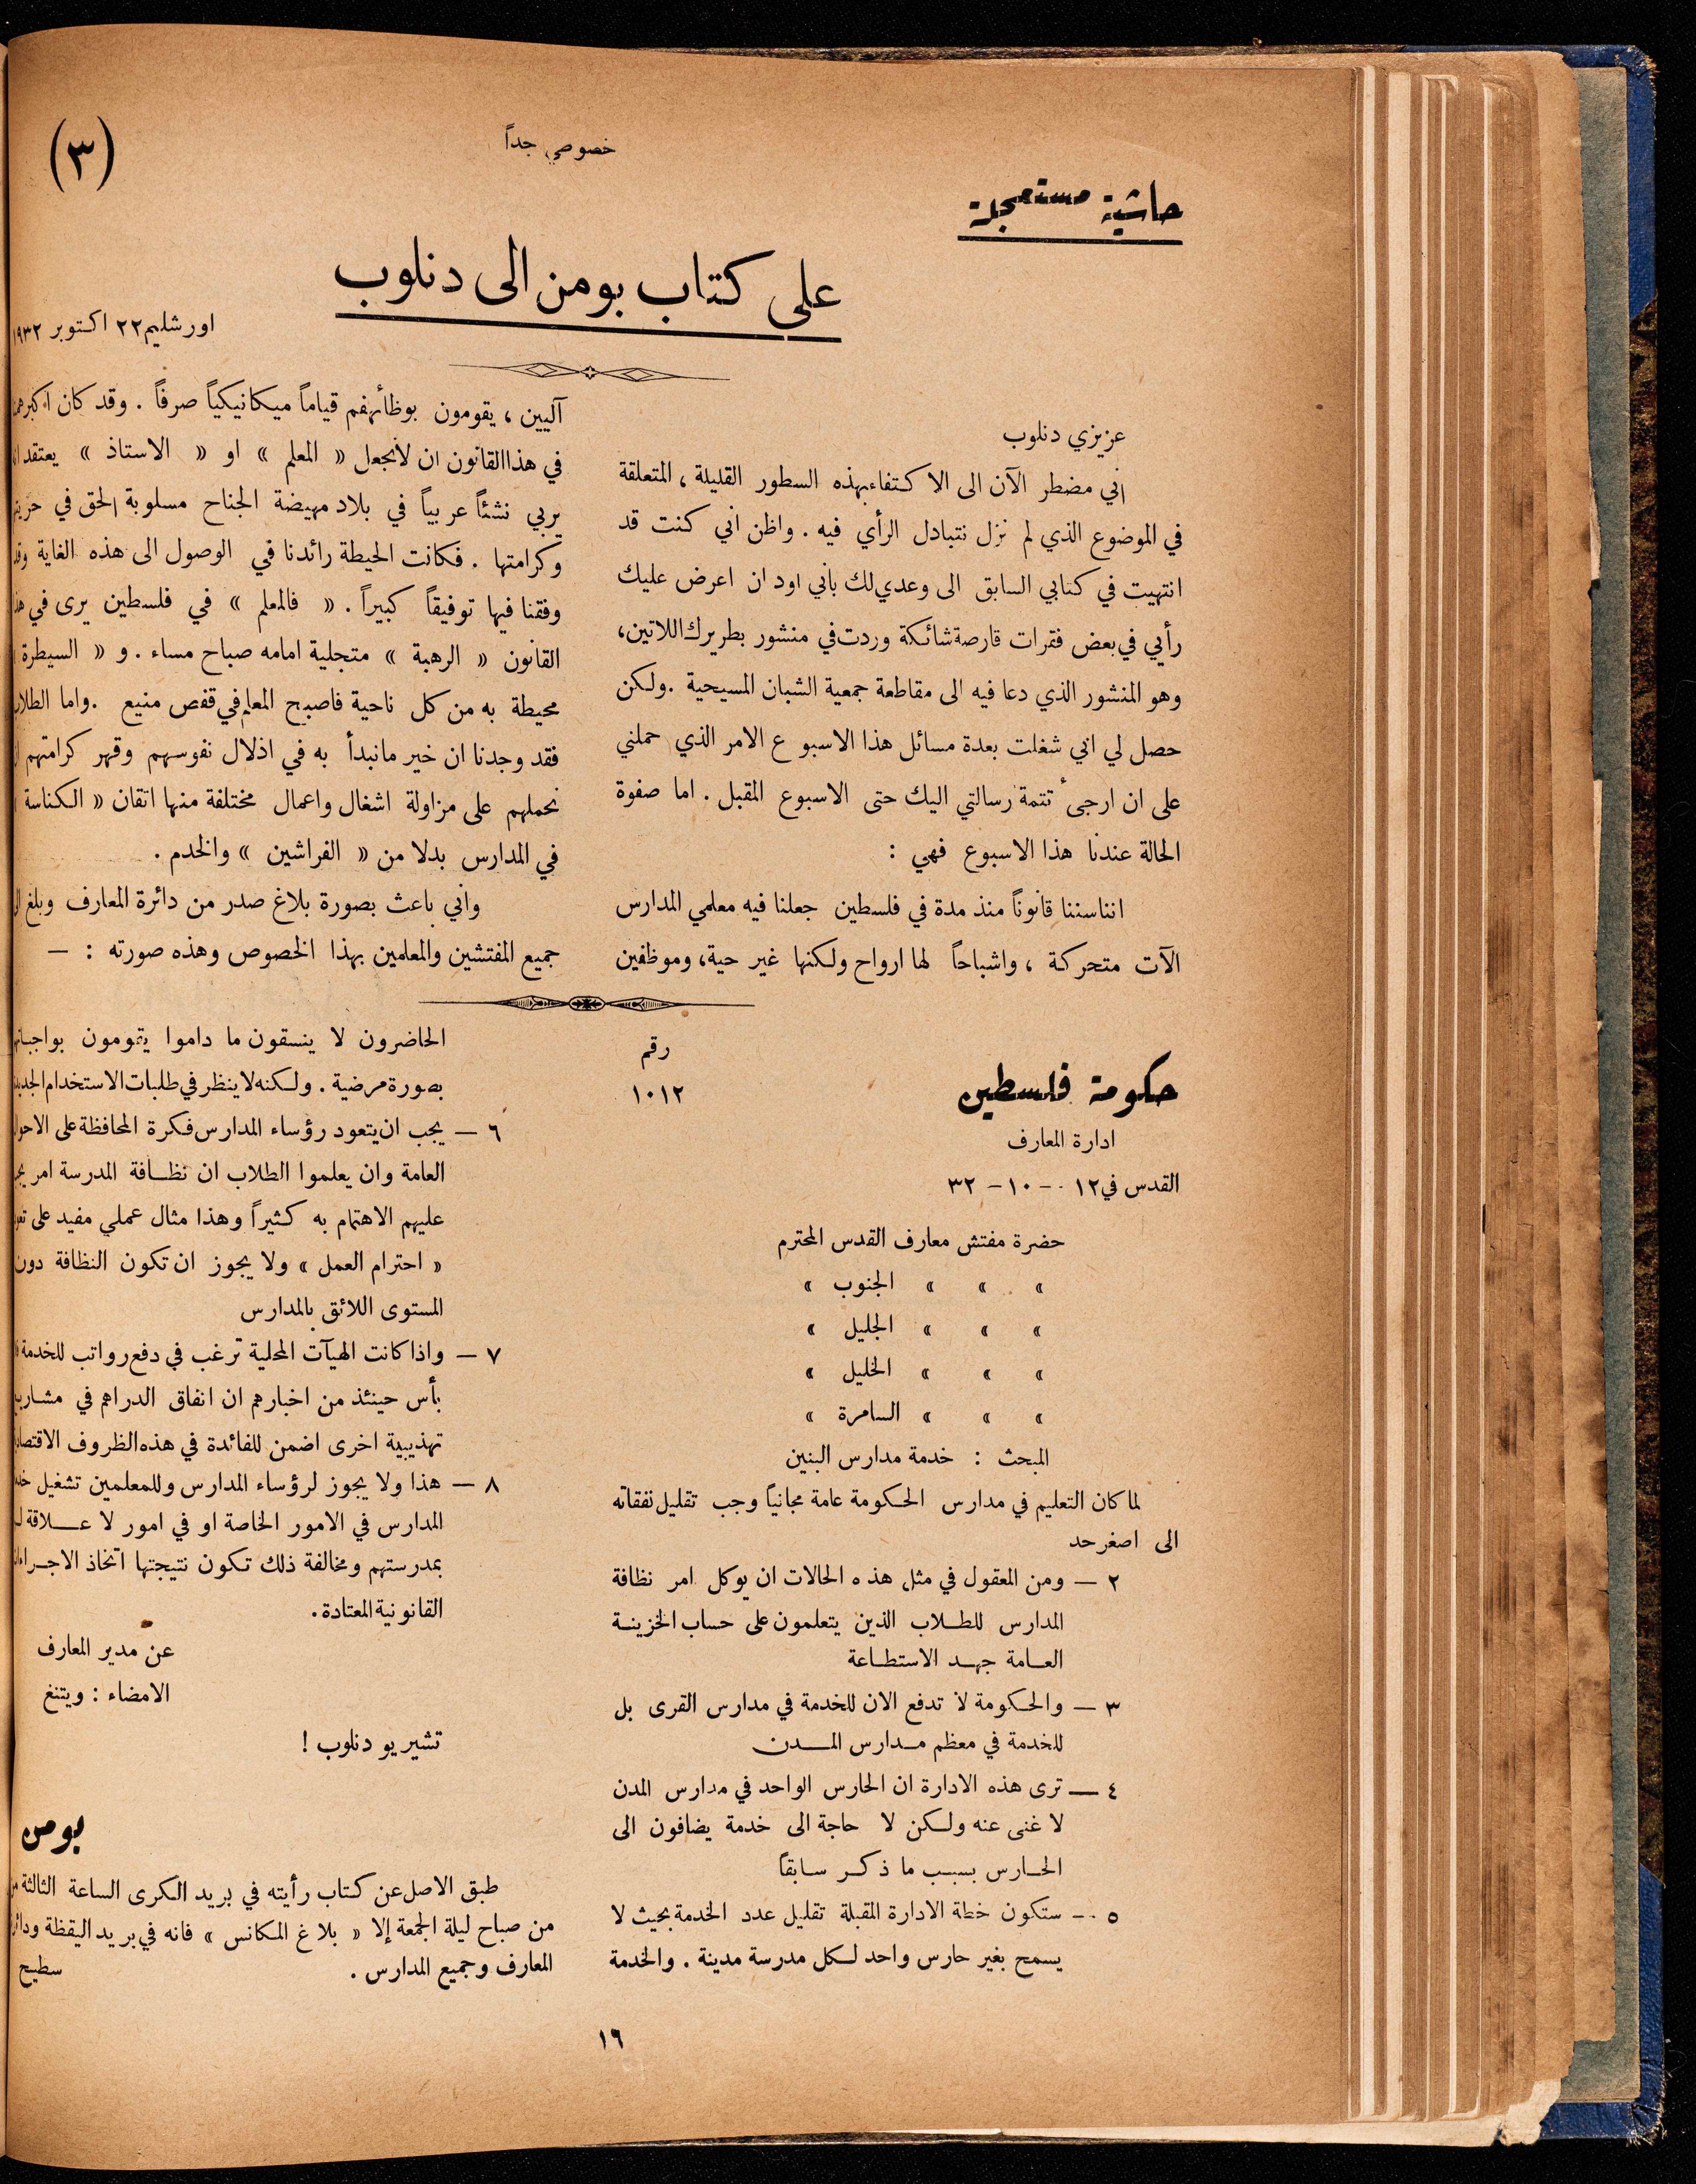 خصوصي جداً
(٣)
حاشية مستعجلة
على كتاب بومن الى دنلوب
اورشليم ٢٢ اكتوبر ١٩٣٢
عزيزي دنلوب
اني مضطر الآن الى الاكتفاء بهذه السطور القليلة ، المتعلقة
في الموضوع الذي لم نزل نتبادل الرأي فيه . واظن اني كنت قد
انتهيت في كتابي السابق الى وعدي لك باني اود ان اعرض عليك
رأيي في بعض فقرات قارصة شائكة وردت في منشور بطريرك اللاتين،
وهو المنشور الذي دعا فيه الى مقاطعة جمعية الشبان المسيحية . ولكن
حصل لي اني شغلت بعدة مسائل هذا الاسبوع الامر الذي حملني
على ان ارجئ تتمة رسالتي اليك حتى الاسبوع المقبل . اما صفوة
الحالة عندنا هذا الاسبوع فهي :
اننا سننا قانوناً منذ مدة في فلسطين جعلنا فيه معلمي المدارس
آلات متحركة ، واشباحاً لها ارواح ولكنها غير حية، وموظفين
آليين ، يقومون بوظائفهم قياماً ميكانيكياً صرفاً . وقد كان اكبر
في هذا القانون ان لا نجعل « المعلم » او « الاستاذ » يعتقد
يربي نشئاً عربياً في بلاد مهيضة الجناح مسلوبة الحق في
وكرامتها . فكانت الحيطة رائدنا في الوصول الى هذه الغاية وقد
وفقنا فيها توفيقاً كبيراً . « فالمعلم » في فلسطين يرى في
القانون « الرهبة » متجلية امامه صباح مساء . و « السيطرة
محيطة به من كل ناحية فاصبح المعلم في قفص منيع . واما الطلاب
فقد وجدنا ان خير مانبدأ به في اذلال نفوسهم وقهر كرامتهم
نحملهم على مزاولة اشغال واعمال مختلفة منها اتقان « الكناسة
في المدارس بدلا من « الفراشين » والخدم .
واني باعث بصورة بلاغ صدر من دائرة المعارف وبلغ
جميع المفتشين والمعلمين بهذا الخصوص وهذه صورته : —
حكومة فلسطين
رقم
١٠١٢
ادارة المعارف
القدس في ١٢ - ١٠ - ٣٢
حضرة مفتش معارف القدس المحترم
» » » الجنوب »
» » » الجليل »
» » » الخليل »
» » » السامرة »
المبحث : خدمة مدارس البنين
لما كان التعليم في مدارس الحكومة عامة مجانياً وجب تقليل نفقاته
الى اصغر حد
٢ — ومن المعقول في مثل هذه الحالات ان يوكل امر نظافة
المدارس للطلاب الذين يتعلمون على حساب الخزينة
العامة جهد الاستطاعة
٣ — والحكومة لا تدفع الان للخدمة في مدارس القرى بل
للخدمة في معظم مدارس المدن
٤ — ترى هذه الادارة ان الحارس الواحد في مدارس المدن
لا غنى عنه ولكن لا حاجة الى خدمة يضافون الى
الحارس بسبب ما ذكر سابقاً
٥ - ستكون خطة الادارة المقبلة تقليل عدد الخدمة بحيث لا
يسمح بغير حارس واحد لكل مدرسة مدينة . والخدمة
الحاضرون لا ينسقون ما داموا يقومون
بصورة مرضية . ولكنه لا ينظر في طلبات الاستخدام
٦ — يجب ان يتعود رؤساء المدارس فكرة المحافظة على
العامة وان يعلموا الطلاب ان نظافة المدرسة امر
عليهم الاهتمام به كثيراً وهذا مثال عملي مفيد على
« احترام العمل » ولا يجوز ان تكون النظافة دون
المستوى اللائق بالمدارس
٧ — واذا كانت الهيآت المحلية ترغب في دفع رواتب للخدمة
بأس حينئذ من اخبارهم ان انفاق الدراهم في
تهذيبية اخرى اضمن للفائدة في هذه الظروف
٨ — هذا ولا يجوز لرؤساء المدارس وللمعلمين تشغيل
المدارس في الامور الخاصة او في امور لا علاقة
بمدرستهم ومخالفة ذلك تكون نتيجتها اتخاذ
القانونية المعتادة .
عن مدير المعارف
الامضاء : ويتنغ
تشيريو دنلوب !
بومن
طبق الاصل عن كتاب رأيته في بريد الكرى الساعة الثالثة
من صباح ليلة الجمعة إلا « بلاغ المكانس » فانه في بريد اليقظة
المعارف وجميع المدارس .
سطيح
١٦